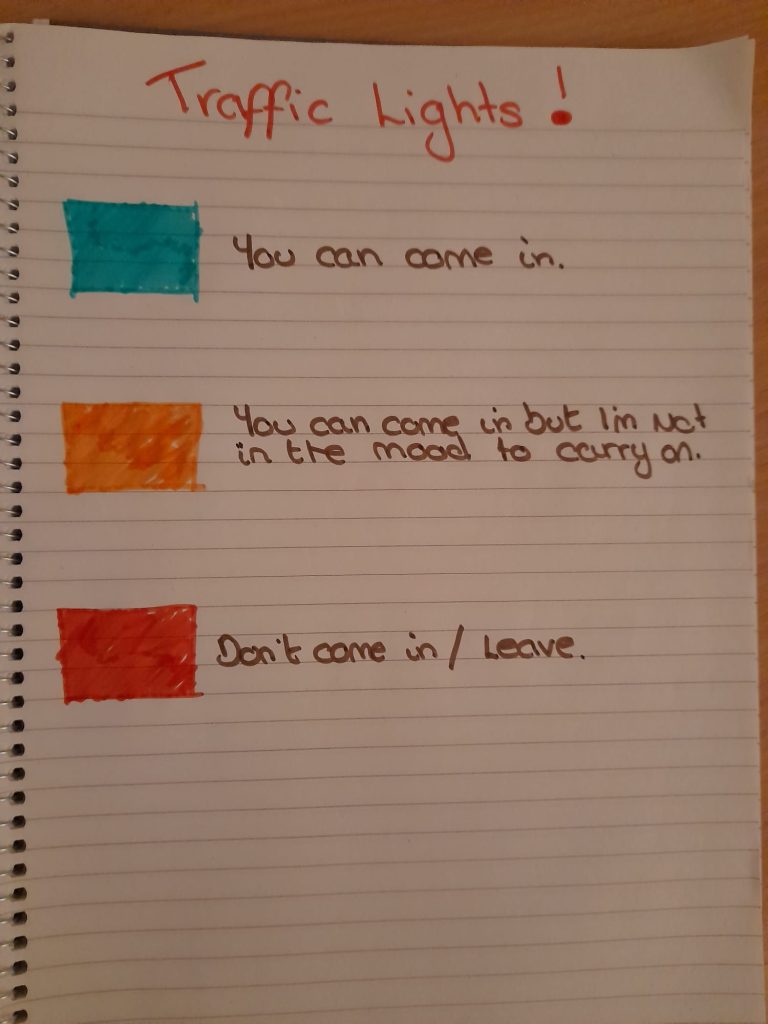 Traffic Lights!
You can come in.
You can come in but I'm Not
in the mood to carry on.
Don't come in / Leave.